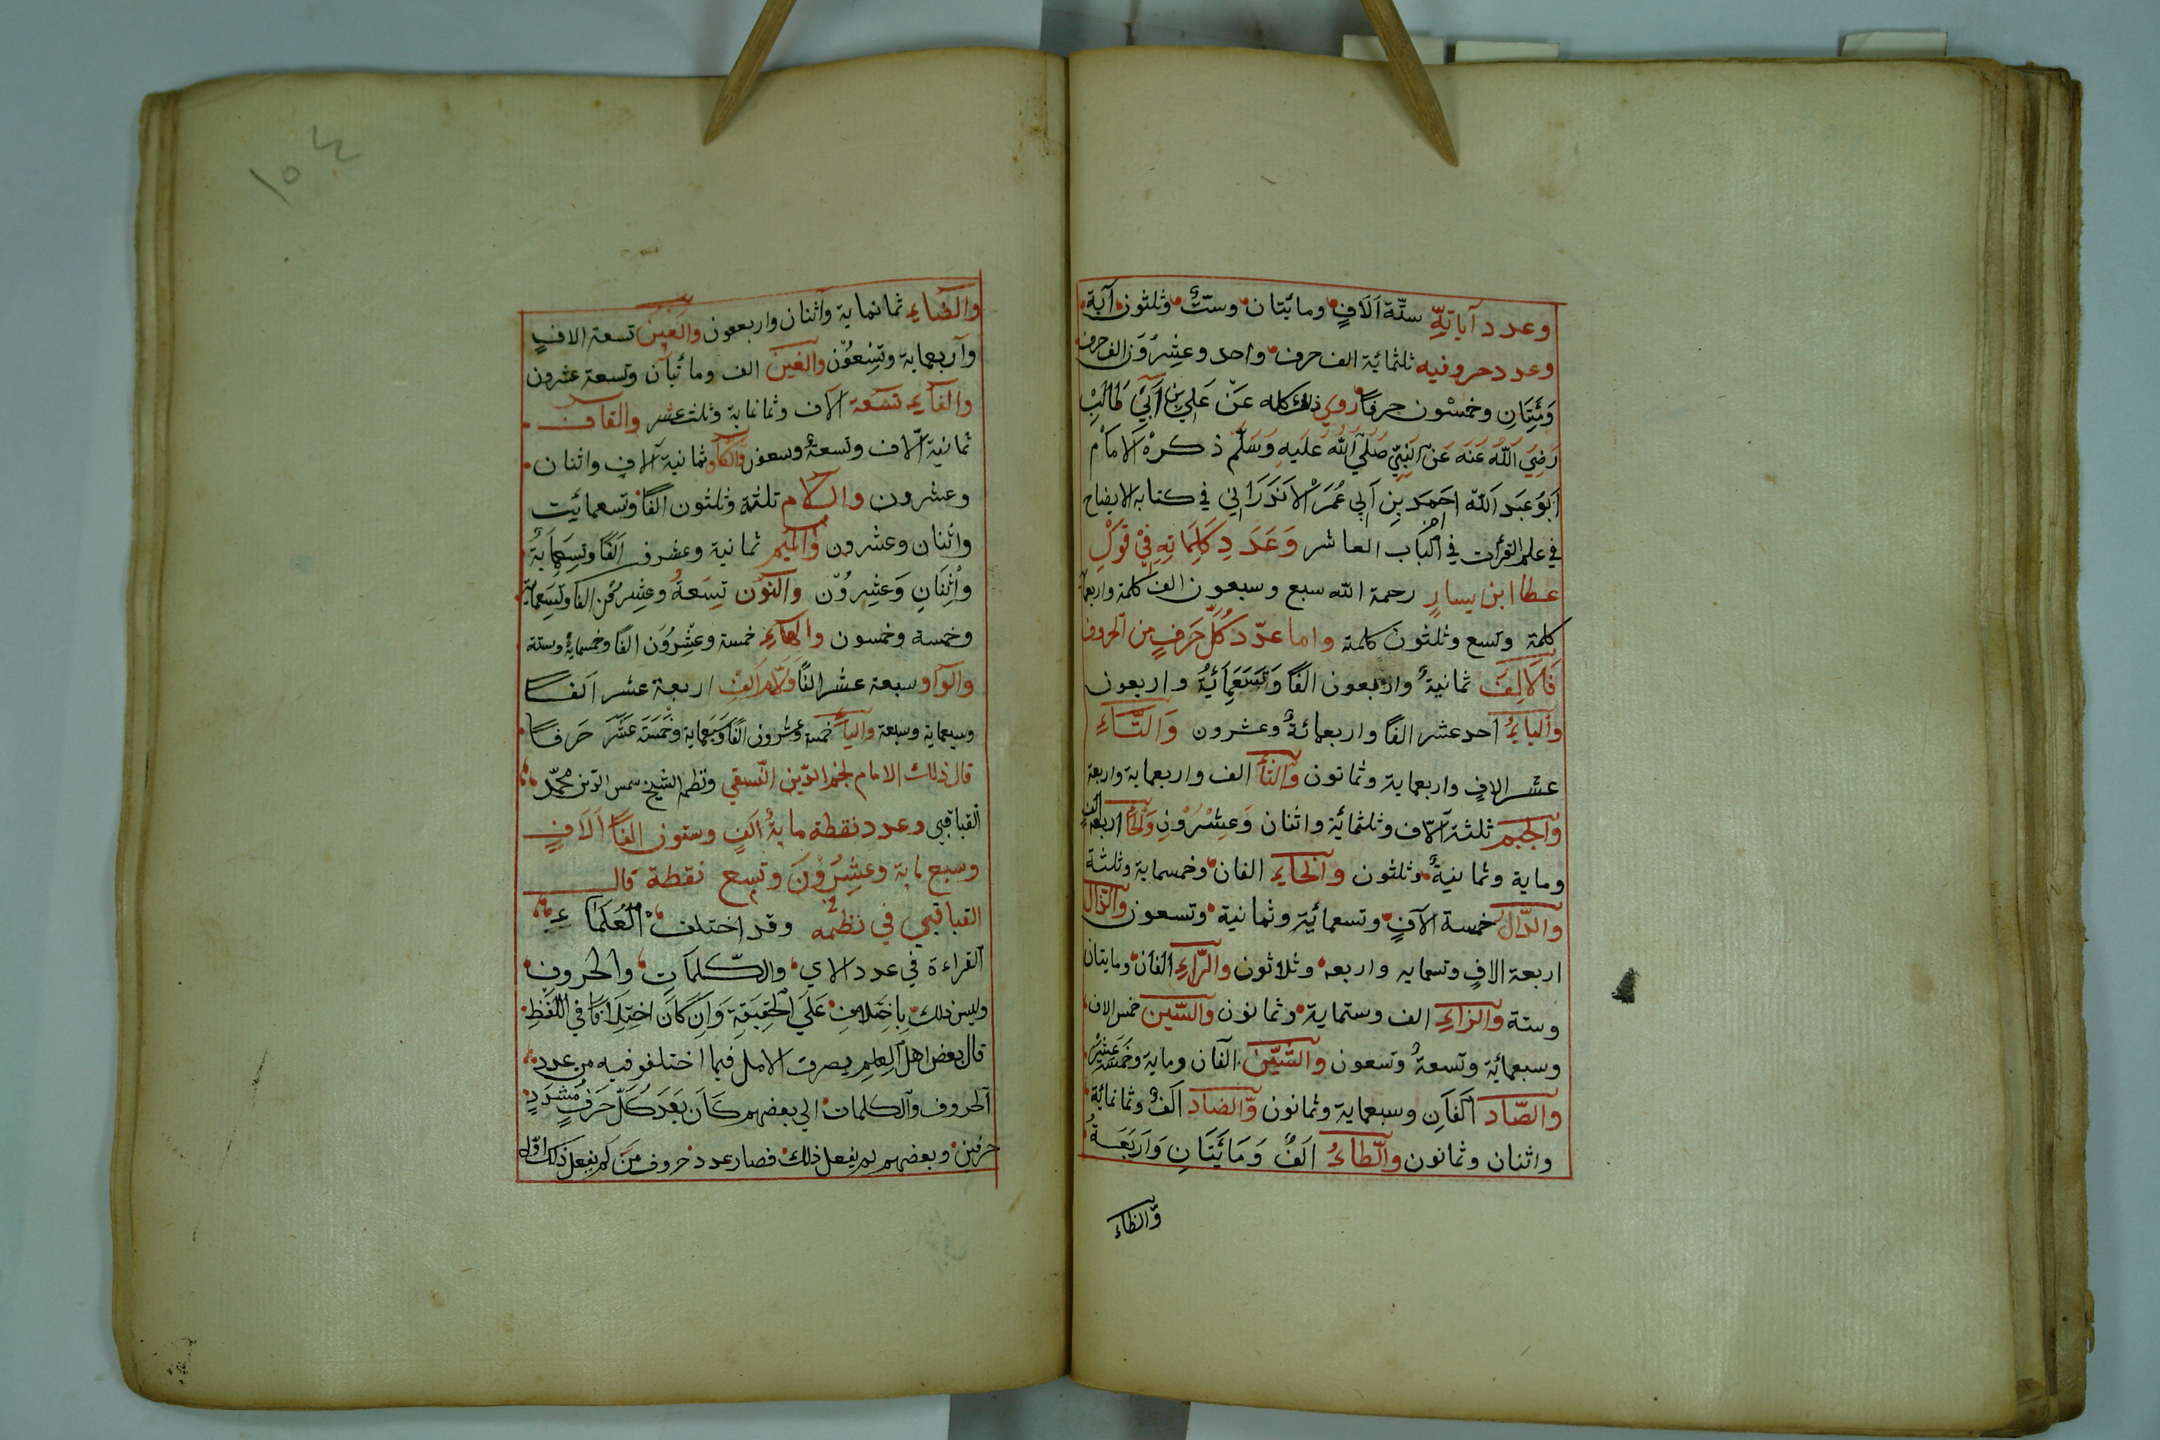 وعدد آياته ستّة آلاف ومائتان وستّ وثلثون آية
وعدد حروفه ثلثمائية الف حرف واحد وعشرون الف حرف
ومئتان وخمسون حرفا روي ذلك كله عن علي بن أبي طالب
رضي الله عنه عن النبي صلي الله عليه وسلم ذكره الامام
ابو عبد الله احمد بن ابي عمر الاندرابي في كتابه الايضاح
في علم القرأت في الباب العاشر وعدد كلماته في قول
عطا ابن يسار رحمة الله سبع وسبعون الف كلمة واربعماية
كلمة وتسع وثلثون كلمة واما عدد كل حرف من الحروف
فالالف ثمانية واربعون الفا وتسعمائية واربعون
والباء احد عشر الفا واربعمائة وعشرون والتاء
عشر الاف واربعماية وثمانون والثا الف واربعماية واربعة
والجيم ثلثة آلاف وثلثمائية واثنان وعشرون والحا اربعة الف
وماية وثمانية وثلثون والخاء الفان وخمسماية وثلثة
والدال خمسة الآف وتسعمائية وثمانية وتسعون والذال
اربعة الاف وتسمايه واربعه وثلاثون والراء الفان ومايتان
وستة والزاء الف وستماية وثمانون والسين خمس الاف
وسبعمائية وتسعة وتسعون والشين الفان وماية وخمسة عشر
والصاد الفان وسبعماية وثمانون والضاد الف وثمانمائية
واثنان وثمانون والطاء الف ومايتان واربعة
والظاء
١٥٤
والظاء ثمانماية واثنان واربعون والعين تسعة الاف
واربعماية وتسعون والغين الف ومائيان وتسعة عشرون
والفاء تسعة الآف وثمانماية وثلث عشر والقاف
ثمانية آلاف وتسعة وسعون والكاف ثمانية آلاف واثنان
وعشرون واللام ثلثة وثلثون الفا وتسعمائيت
واثنان وعشرون والميم ثمانية وعشرون الفا وتسعماية
واثنان وعشرون والنون تسعة وعشرون الفا وتسعماية
وخمسة وخمسون والهاء خمسة وعشرون الفا وخمسماية وستة
والواو سبعة عشر الفا ولام الف اربعة عشر الفا
وسبعماية وسبعة والياء خمسة وعشرون الفا وسبعماية وخمسة عشر حرفا
قال ذلك الامام لجم الدين النسفي ونظم الشيخ سمس الدين محمد
القباقبي وعدد نقطه ماية الف وستون الفا الاف
وسبع ماية وعشرون وتسع نقطة قال
القباقبي في نظمه وقد اختلف العلماء
القراءة في عدد الاي والكلمات والحروف
وليس ذلك باختلاف علي الحقيقة وان كان اختلافا في اللفظ
قال بعض اهل العلم يصرف الامل فيما اختلفو فيه من عدد
الحروف والكلمات الي بعضهم كان يعد كل حرف مشدد
حرفين وبعضهم لم يفعل ذلك فصار عدد حروف من لم يفعل ذلك اول